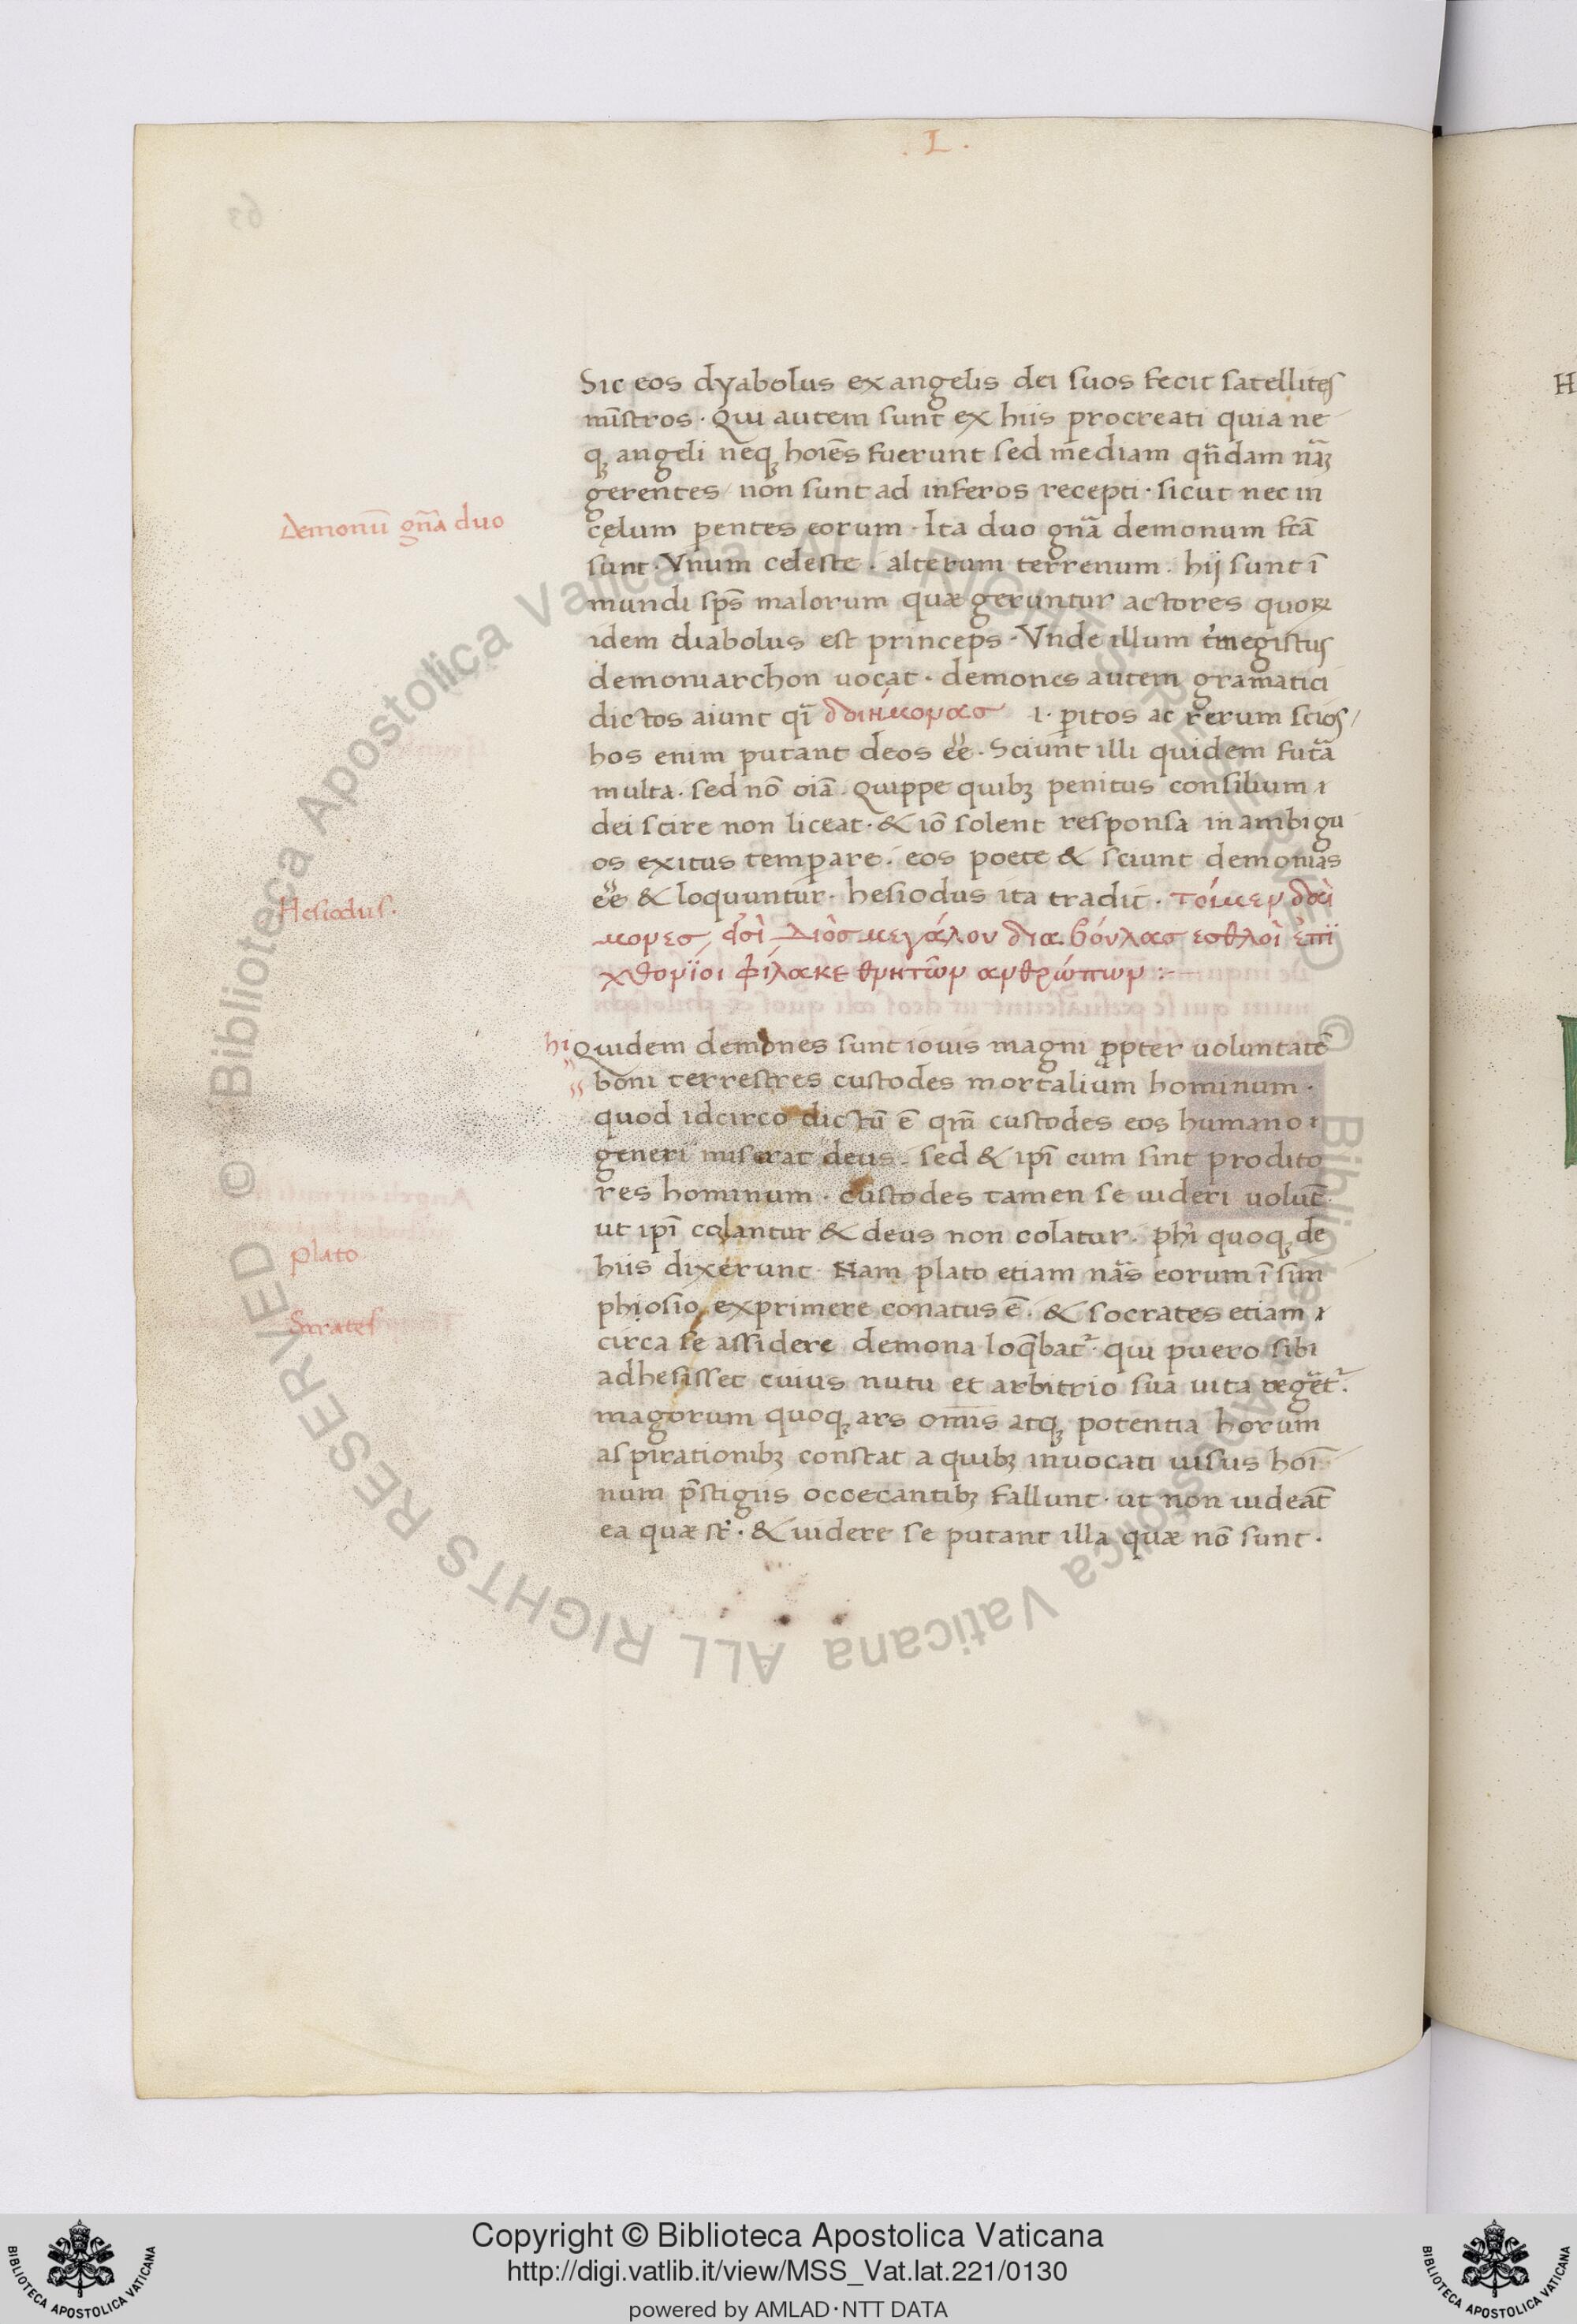 . L .
Sic eos dyabolus ex angelis dei suos fecit satellites
mĩstros · Qui autem sunt ex hiis procreati quia ne
qꝫ angeli neqꝫ hoiẽs fuerunt sed mediam qñdam nãꝫ
gerentes / non sunt ad inferos recepti · sicut nec in
Demonũ gñã duo
cęlum pentes eorum · Ita duo gñã demonum fcã
sunt · Vnum celeste . alterum terrenum . hij sunt ĩ
mundi sps̃ malorum quæ geruntur actores quoꝝ
idem diabolus est princeps · Vnde illum t'megistus
demoniarchon uocat · demones autem gramatici
dictos aiunt qĩ δαιήμονασ ı · pitos ac rerum scios /
hos enim putant deos ẽe · Sciunt illi quidem futã
multa · sed nõ oiã . Quippe quibꝫ penitus consilium ı
dei scire non liceat · & iõ solent responsa in ambigu
os exitus temperare . eos poete & sciunt demonas
Hesiodus ·
ẽe & loquuntur · hesiodus ita tradit · τόιμεν δαί
μονεσ, ἐισὶ Διὸσ μεγάλου δια βόυλασ εσθλοὶ ἐπϊ
χθονϊοι φίλακε θνητω̃ν ανθρώπων :-
hi Quidem demones sunt iouis magni ꝓpter uoluntatẽ
boni terrestres custodes mortalium hominum ·
quod idcirco dictũ ẽ qm̃ custodes eos humano ı
generi miserat deus . sed & ipĩ cum sint prodito
res hominum · custodes tamen se uideri uolũt
ut ipĩ colantur & deus non colatur . phi quoqꝫ de
plato
hiis dixerunt · Nam plato etiam nãs eorum ĩ sim
phosio exprimere conatus ẽ . & socrates etiam ı
Socrates
circa se assidere demona loq̃bat᷑ · qui puero sibi
adhesisset cuius nutu et arbitrio sua uita reg̃et᷑ .
magorum quoqꝫ ars omis atqꝫ potentia horum
aspirationibꝫ constat a quibꝫ inuocati uisus hoĩ
num p̃stigiis occecantibꝫ fallunt · ut non uideãt
ea quæ st̃ · & uidere se putant illa quæ nõ sunt ·
© Biblioteca Apostolica Vaticana ALL RIGHTS RESERVED
© Biblioteca Apostolica Vaticana ALL RIGHTS RESERVED
Copyright © Biblioteca Apostolica Vaticana
http://digi.vatlib.it/view/MSS_Vat.lat.221/0130
powered by AMLAD·NTT DATA
BIBLIOTECA APOSTOLICA VATICANA
BIBLIOTECA APOSTOLICA VATICANA